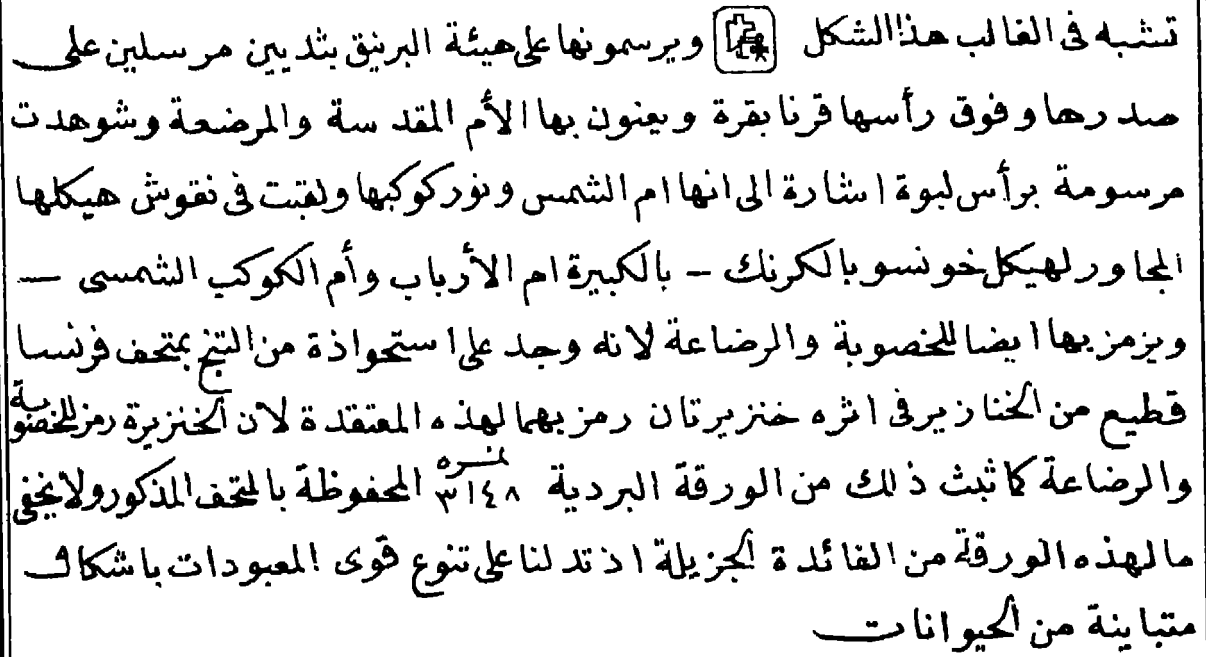 تشبه فى الغالب هذا الشكل ويرسمونها على هيئة البرنيق بثديين مرسلين على
صدرها وفوق رأسها قرنا بقرة ويعنون بها الأم المقدسة والمرضعة وشوهدت
مرسومة برأس لبوة اشارة الى انها ام الشمس ونور كوكبها ولقبت فى نقوش هيكلها
المجاور لهيكل خونسو بالكرنك – بالكبيرة ام الأرباب وأم الكوكب الشمسى –
ويزمز بها ايضا للخصوبة والرضاعة لانه وجد على استحواذة من التبج بمتحف فرنسا
قطيع من الخنازير فى اثره خنزيرتان رمز بهما لهذه المعتقدة لان الخنزيرة رمز للخصوبة
والرضاعة كما ثبث ذلك من الورقة البردية نمره ٣١٤٨ المحفوظة بالمتحف المذكور ولا يخفى
ما لهذه الورقة من الفائدة الجزيلة اذ تدلنا على تنوع قوى المعبودات باشكال
متباينة من الحيوانات